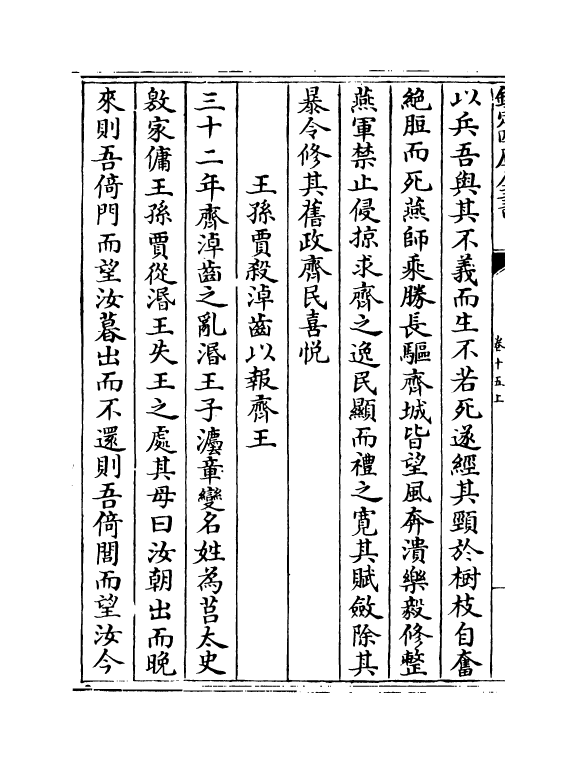 欽定四庫全書
卷十五上
以兵吾與其不義而生不若死遂經其頸於樹枝自奮
絶脰而死燕師乘勝長驅齊城皆望風奔潰樂毅修整
燕軍禁止侵掠求齊之逸民顯而禮之寛其賦斂除其
暴令修其舊政齊民喜悦
王孫賈殺淖齒以報齊王
三十二年齊淖齒之亂湣王子法章變名姓為莒太史
敫家傭王孫賈從湣王失王之處其母曰汝朝出而晚
來則吾倚門而望汝暮出而不還則吾倚閭而望汝今